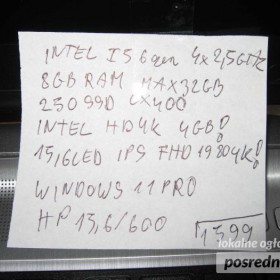 INTEL I5 6gen 4x2,5GHz
8GB RAM MAX32GB
250SSD LX400
INTEL HD4K 4GB!
15,6LED IPS FHD 1920 4K!
WINDOWS 11 PRO
HP 15,6/600
1599
lokalne ogło
posredni